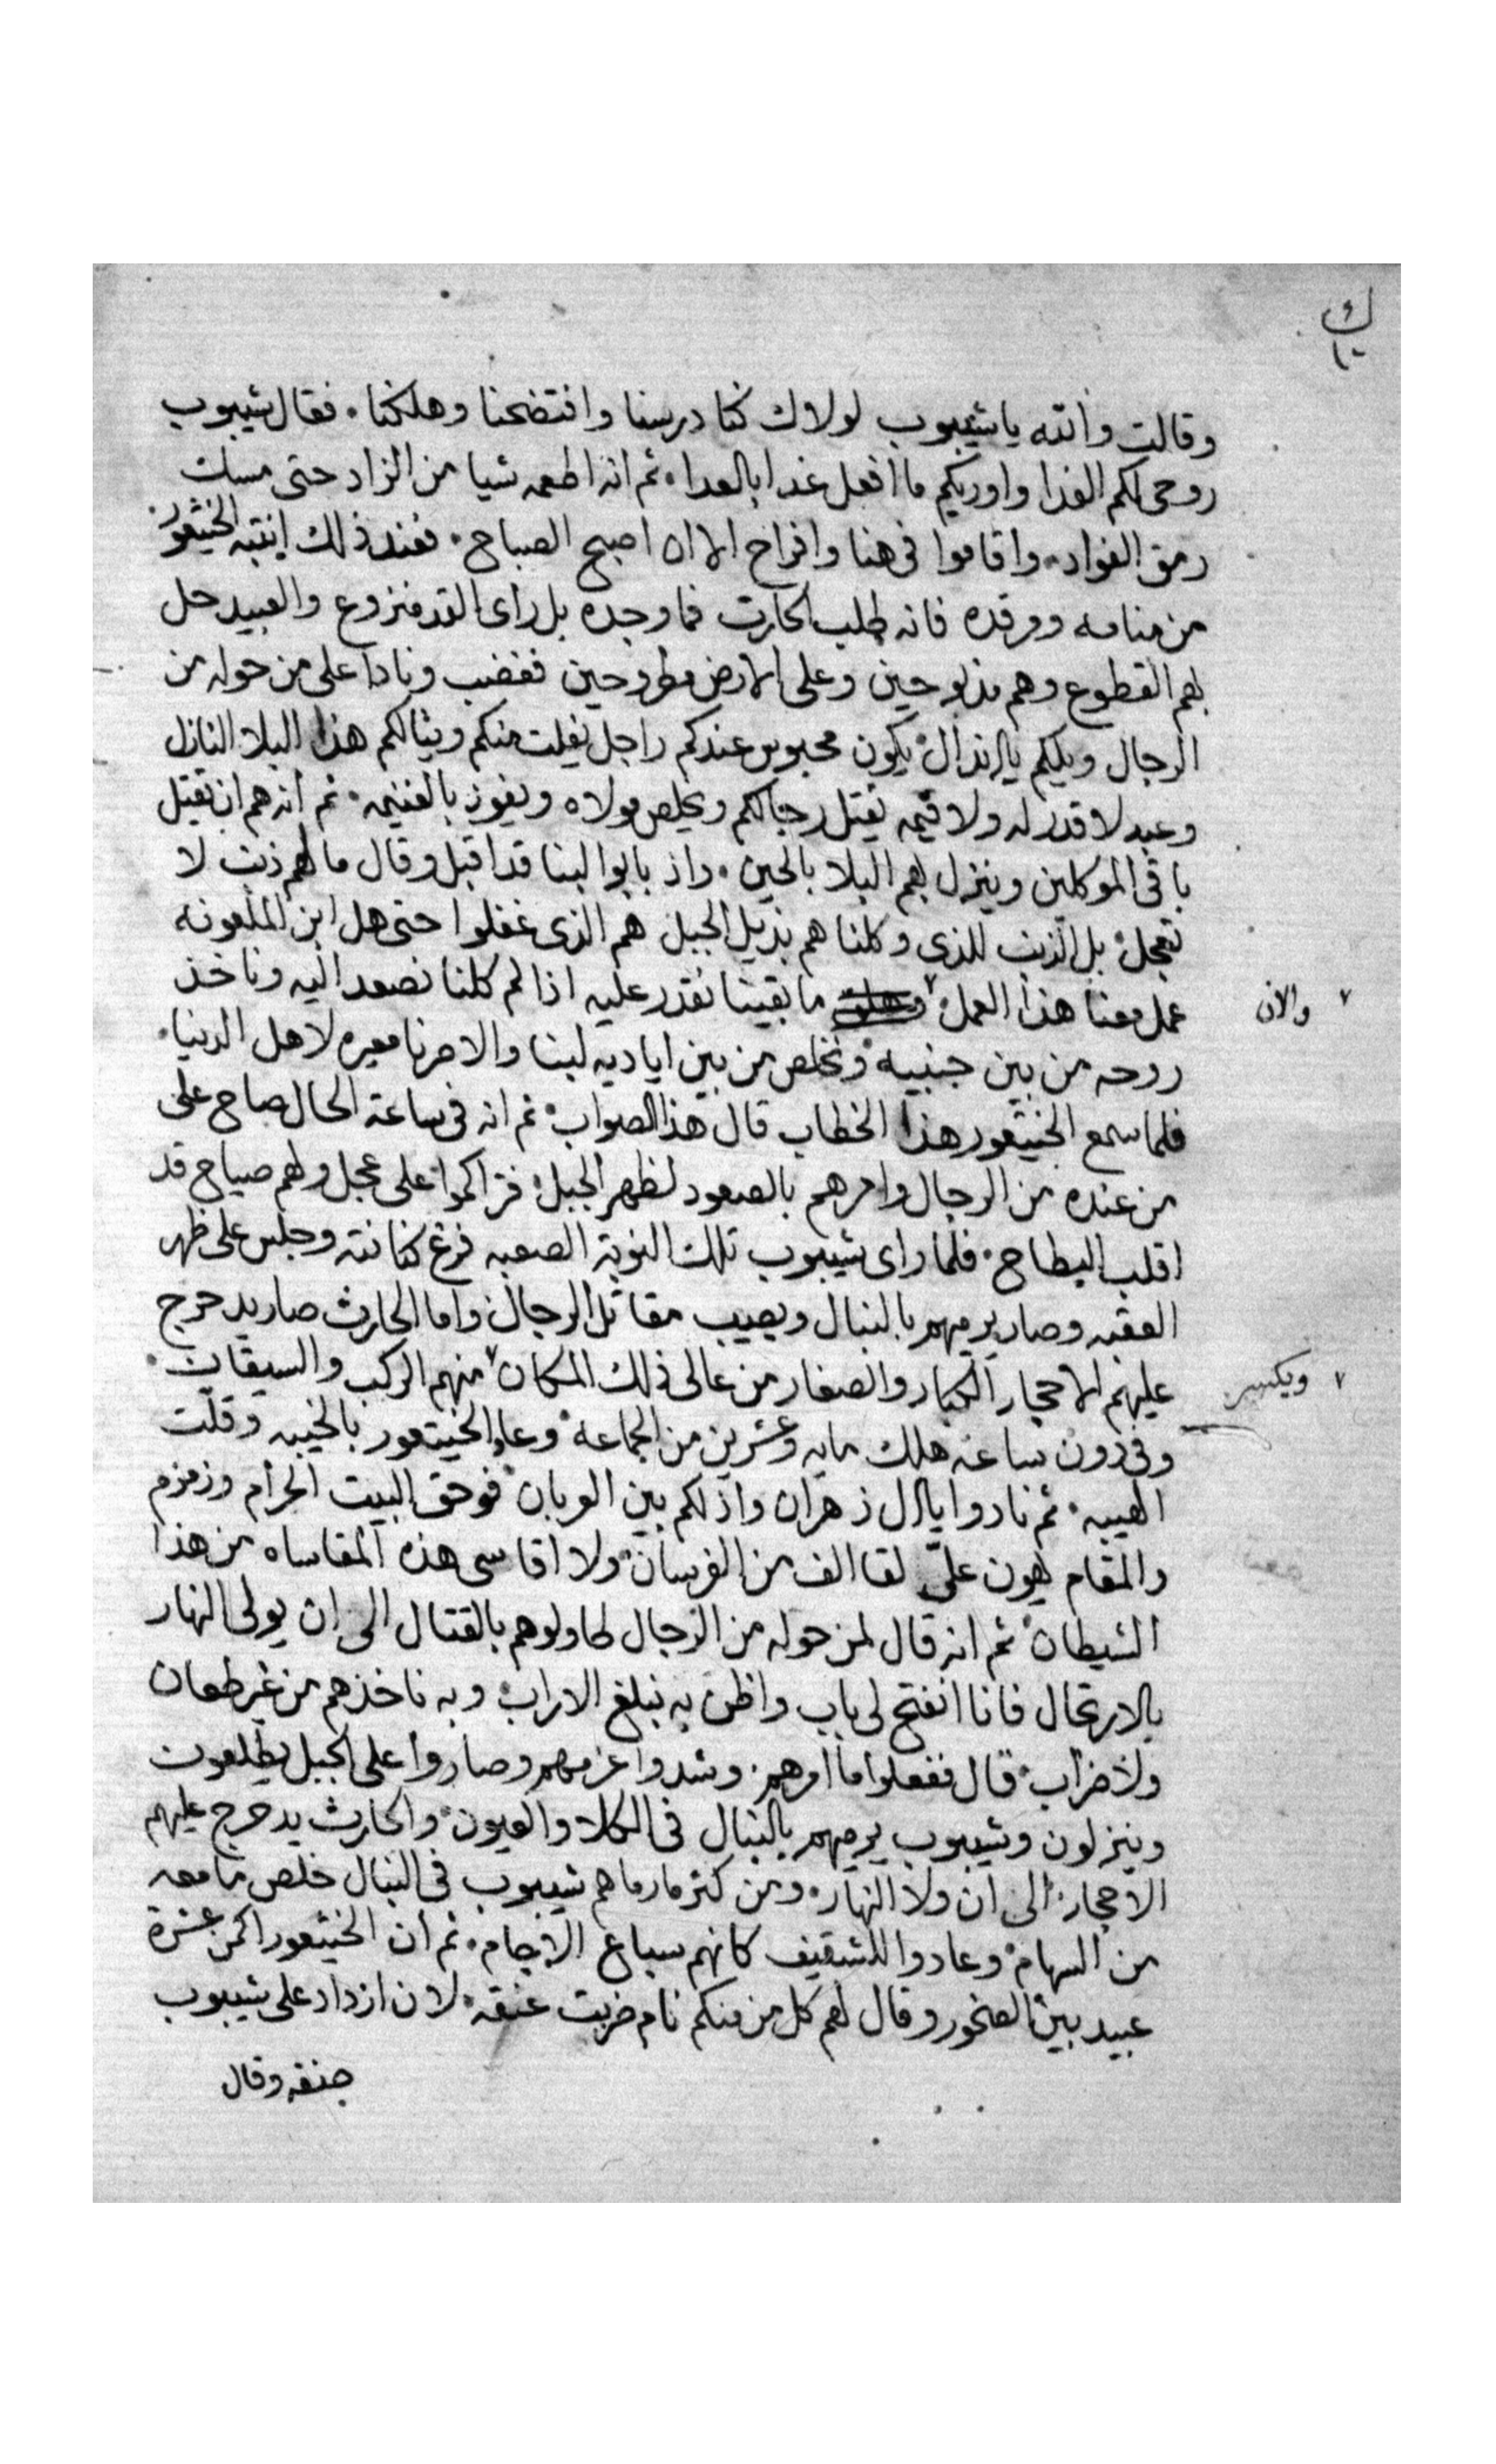 ك
١٠
وقالت والله يا شيبوب لولاك كنا درسنا وافتضحنا وهلكنا. فقال شيبوب
روحى لكم الفدا واوريكم ما افعل غدا بالعدا. ثم انه اطعمه شيا من الزاد حتى مسك
رمق الفواد. واقاموا فى هنا وافراح الا ان اصبح الصباح. فعند ذلك انتبه الخيثعور
من منامه ومرقده فانه طلب الحارث فما وجده بل راى القد منزوع والعبيد حل
بهم القطوع وهم مذبوحين وعلى الارض مطروحين فغضب ونادا على من حوله من
الرجال ويلكم يالانذال يكون محبوس عندكم راجل يفلت منكم وينالكم هذا البلا النازل
وعبد لا قدر له ولا قيمه يقتل رجالكم ويخلص مولاه ويفوز بالغنيمه. ثم انه هم ان يقتل
باقى الموكلين وينزل بهم البلا بالحين. واذ بابو البنا قد اقبل وقال ما لهم ذنب لا
تعجل بل الذنب للذى وكلناهم بذيل الجبل هم الذى غفلوا حتى هل ابن الملعونه
عمل معنا هذا العمل ٧ ما بقينا نقدر عليه اذا لم كلنا نصعد اليه وناخذ
٧ والان
روحه من بين جنبيه ونخلص من بين اياديه لبنا والا صرنا معيره لاهل الدنيا.
فلما سمع الخيثعور هذا الخطاب قال هذا الصواب ثم انه فى ساعة الحال صاح على
من عنده من الرجال وامرهم بالصعود لظهر الجبل فتراكموا على عجل ولهم صياح قد
اقلب البطاح. فلما راى شيبوب تلك النوبة الصعبه فرغ كنانته وجلس على ظهر
العقبه وصار يرميهم بالنبال ويصيب مقاتل الرجال واما الحارث صار يدحرج
عليهم الاحجار الكبار والصغار من عالى ذلك المكان ٧ منهم الركب والسيقان.
٧ ويكسر
وفى دون ساعه هلك مايه وعشرين من الجماعه وعاد الخيثعور بالخيبه وقلت
الهيبه. ثم نادوا يالال زهران واذلكم بين العربان فوحق البيت الحرام وزمزم
والمقام يهون علىّ لقا الف من الفرسان ولا اقاسى هذه المقاساه من هذا
الشيطان ثم انه قال لمن حوله من الرجال طاولوهم بالقتال الى ان يولى النهار
بالارتحال فانا انفتح لى باب واظن به نبلغ الاراب وبه ناخذهم من غير طعان
ولا ضراب قال ففعلوا ما امرهم. وشدوا عزمهم وصاروا على الجبل يطلعون
وينزلون وشيبوب يرميهم بالنبال فى الكلا والعيون والحارث يدحرج عليهم
الاحجار الى ان ولا النهار. ومن كتر ما رماهم شيبوب فى النبال خلص ما معه
من السهام وعادوا للشقيف كانهم سباع الاجام. ثم ان الخيثعور اكمن عشرة
عبيد بين الصخور وقال لهم كل من منكم نام ضربت عنقه. لان ازداد على شيبوب
حنقه وقال